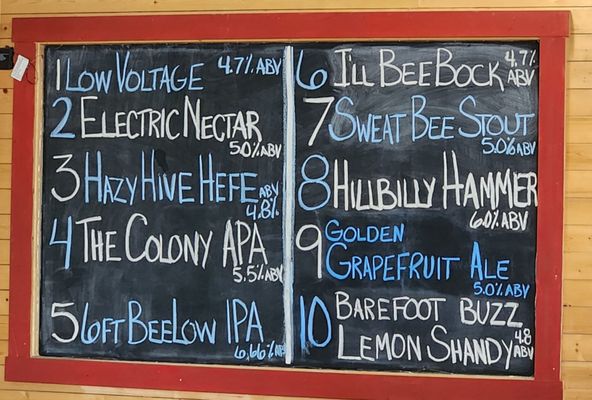 1 Low Voltage 4.7% ABV
2 Electric Nectar
5.0% ABV
3 Hazy Hive Hefe ABV
4.8%
4 The Colony APA
5.5% ABV
5 6ft BeeLow IPA
6.66%
6 I'll Bee Bock 4.7%
ABV
7 Sweat Bee Stout
5.0% ABV
8 Hillbilly Hammer
6.0% ABV
9 Golden
Grapefruit Ale
5.0% ABV
10 Barefoot Buzz
Lemon Shandy 4.8
ABV